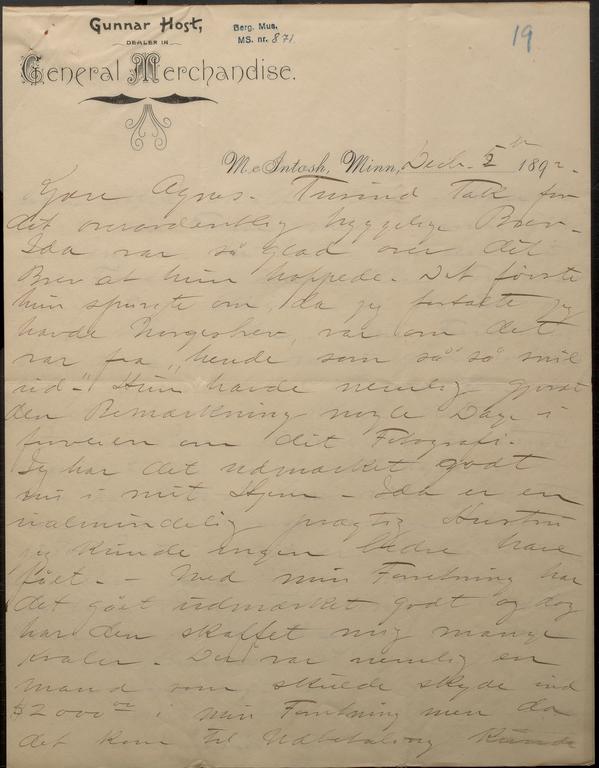 Gunnar Host,
DEALER IN
General Merchandise.
Berg. Mus.
MS. nr. 871
19
McIntosh, Minn, Decbr. 5th 1892.
Kjære Agnes. Tusind Tak for
dit overordentlig hyggelige Brev.
Ida var så glad over dit
Brev at hun hoppede. Det første
hun spurgte om, da jeg fortalte jeg
havde Norgesbrev, var om det
var fra "hende som så så snil
ud". Hun havde nemlig gjort
den Bemærkning nogle Dage i
forveien om dit Fotografi.
Jeg har det udmærket godt
nu i mit Hjem - Ida er en
ualmindelig prægtig Hustru
jeg kunde ingen bedre have
fået. - Med min Forretning har
det gået udmærket godt og dog
har den skaffet mig mange
Kvaler. Der var nemlig en
mand som skulde skyde ind
$2000.00 i min Forretning men da
det kom til Udbetaling kunde